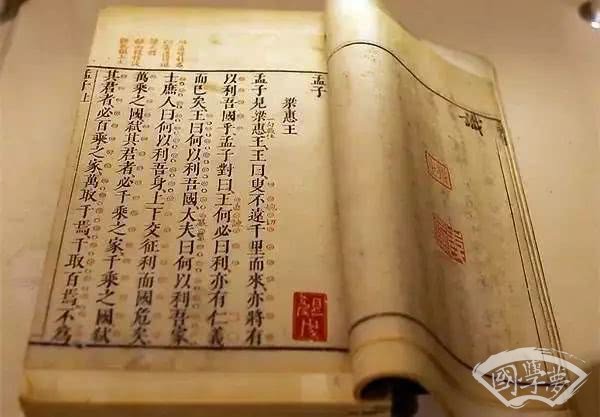 識
孟子
梁惠王
孟子見梁惠王、王曰、叟不遠千里而來、亦將有
以利吾國乎、孟子對曰、王何必曰利、亦有仁義
而已矣、王曰何以利吾國、大夫曰何以利吾家、
士庶人曰何以利吾身、上下交征利而國危矣、
萬乘之國弒其君者、必千乘之家、千乘之國弒
其君者、必百乘之家、萬取千焉、千取百焉、不爲
孟子上
國學夢